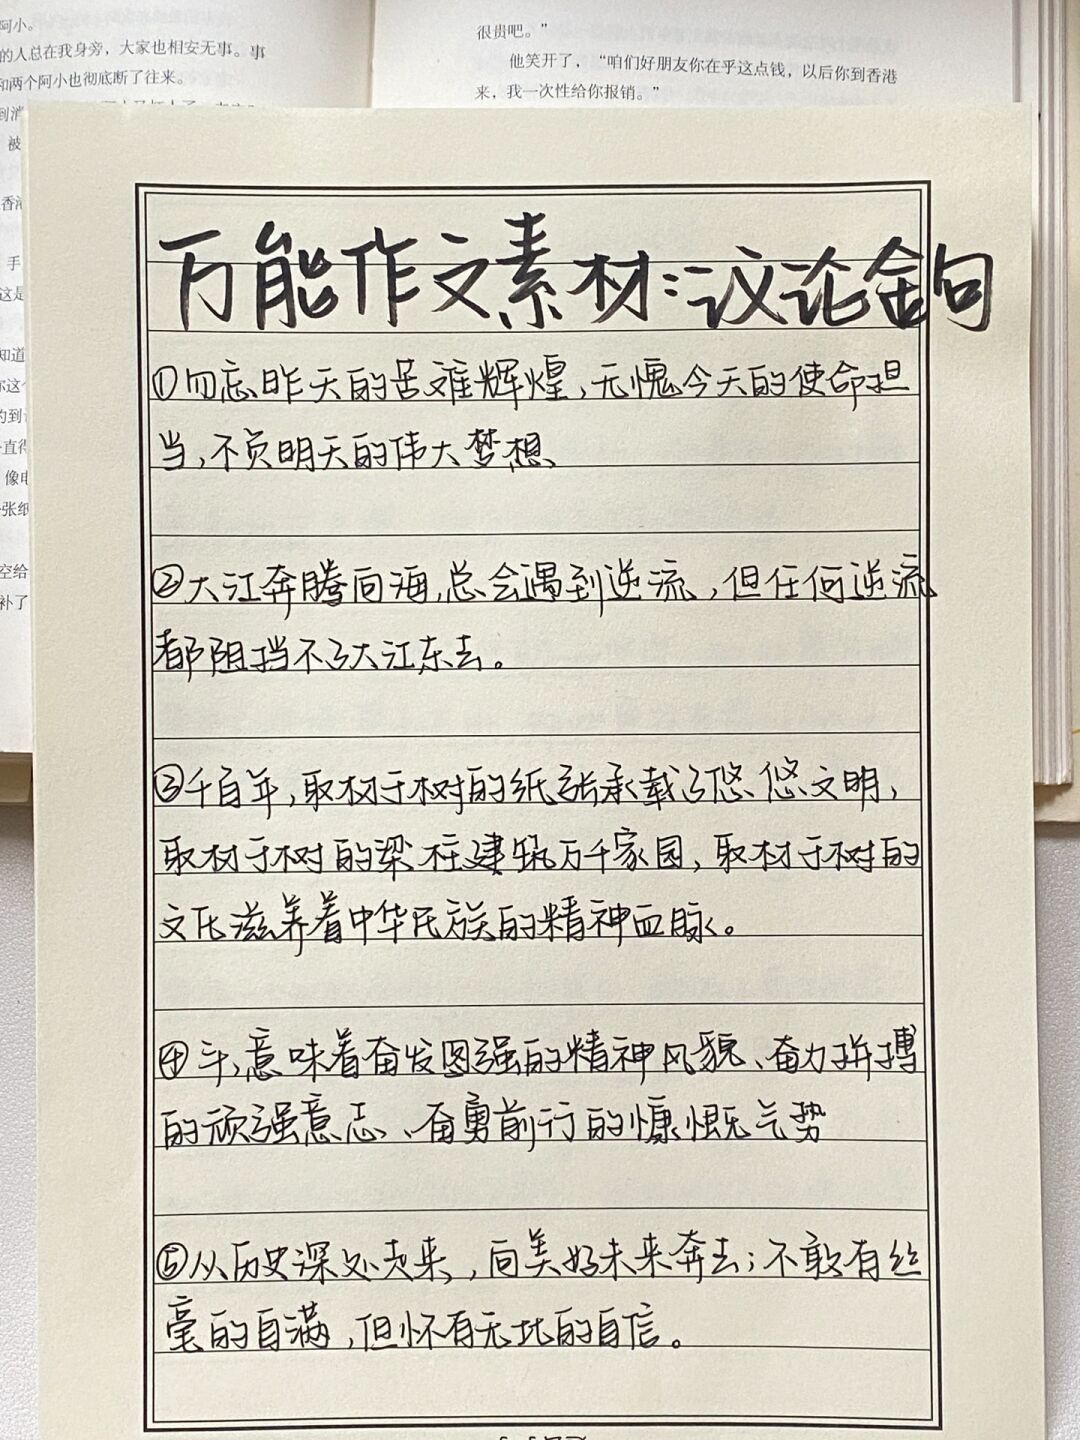 阿小。
的人总在我身旁，大家也相安无事。事
和两个阿小也彻底断了往来。
到消
被
香港
手
这是
知道
你这个
的到
直得
像电
张纸
空给
补了
很贵吧。”
他笑开了，“咱们好朋友你在乎这点钱，以后你到香港
来，我一次性给你报销。”
万能作文素材:议论金句
①勿忘昨天的苦难辉煌，无愧今天的使命担
当，不负明天的伟大梦想、
②大江奔腾向海，总会遇到逆流，但任何逆流
都阻挡不了大江东去。
③千百年，取材于树的纸张承载了悠悠文明，
取材于树的梁柱建筑万千家园，取材于树的
文化滋养着中华民族的精神血脉。
④斗，意味着奋发图强的精神风貌、奋力拼搏
的顽强意志、奋勇前行的慷慨气势
⑤从历史深处走来，向美好未来奔去；不敢有丝
毫的自满，但怀有无比的自信。